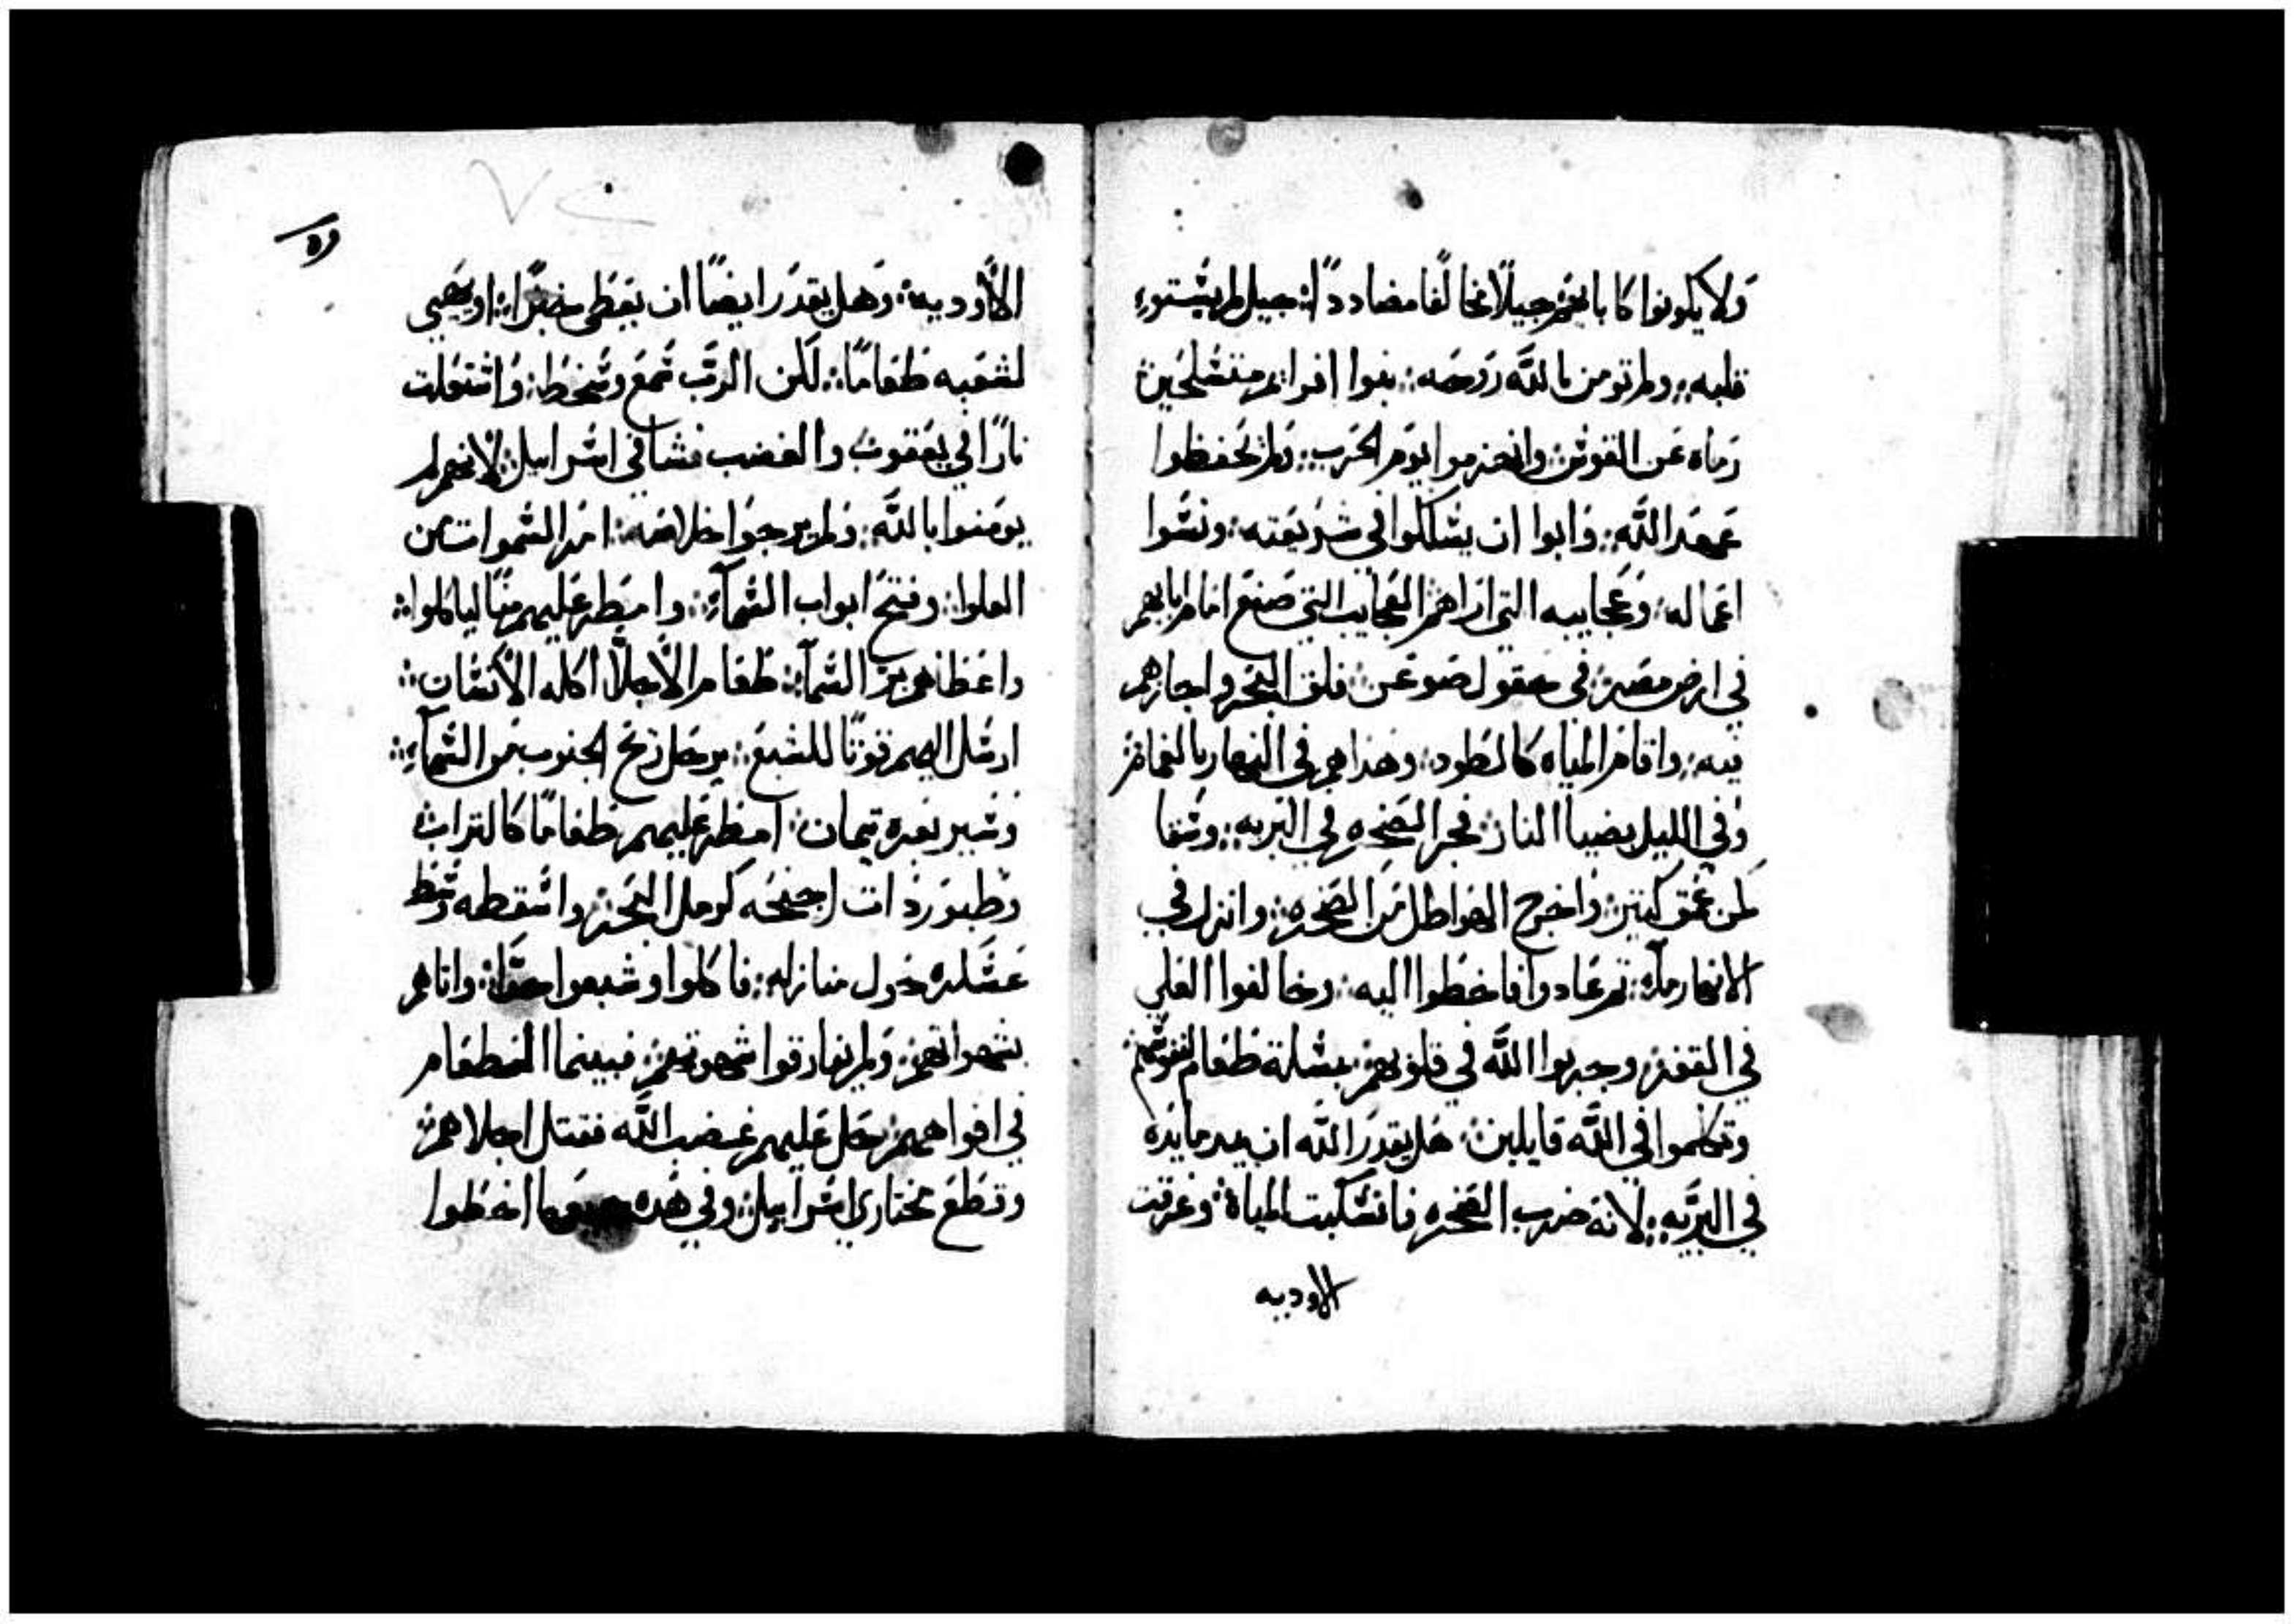 ولا يكونوا كابايهم جيلاً مخالفا مضاددًا: جيل لم يستوِ
قلبه: ولم تومن بالله روحه: بنوا افرايم متسلحين
رماه عن القوس: وانهزموا يوم الحرب: ولم يحفظوا
عهد الله: وابوا ان يسلكوا في شريعته: ونسوا
اعماله: وعجايبه التي اراهم العجايب التي صنع امام ابايهم
في ارض مصر: في حقول صوعن: فلق البحر واجازهم
فيه: واقام المياه كالطود: وهداهم في النهار بالغمام:
وفي الليل بضيا النار: فجر الصخره في البريه: وسقا
لمن عمق كبير: واخرج الهواطل من الصخره: وانزل في
الانهار مآء: ثم عادوا فاخطوا اليه: وخالفوا العلي
في القفر: وجربوا الله في قلوبهم: بمسلة طعام لنفوسهم
وتكلموا في الله قايلين: هل يقدر الله ان يعد مايده
في البريه: لانه ضرب الصخره فانسكبت المياه: وغرقت
الاوديه
الاوديه: وهل يقدر ايضًا ان يعطى خبزًا: او يهيي
لشعبه طعامًا: لكن الرب سمع وسخط: واشتعلت
نارًا في يعقوب والغضب فشا في اسراييل: لانهم لم
يومنوا بالله: ولم يرجوا خلاصه: امر السموات من
العلوا: وفتح ابواب السمآء: وامطر عليهم منًا لياكلوا:
واعطاهم خبز السمآء: طعام الاجلا اكله الانسان:
ارسل اليهم قوتًا للشبع: يرحل ريح الجنوب من السمآء:
وسير بعزه تيمان: امطر عليهم طعامًا كالتراب
وطيور ذات اجنحه كرمل البحر: واسقطه وسط
عسكره حول منازله: فاكلوا وشبعوا حقًا: واتاهم
بشهواتهم: ولم يفارقوا شهوتهم: فبينما الطعام
في افواههم: حل عليهم غضب الله فقتل اجلاهم:
وقطع مختاري اسراييل: وفي هذه انه ظوا